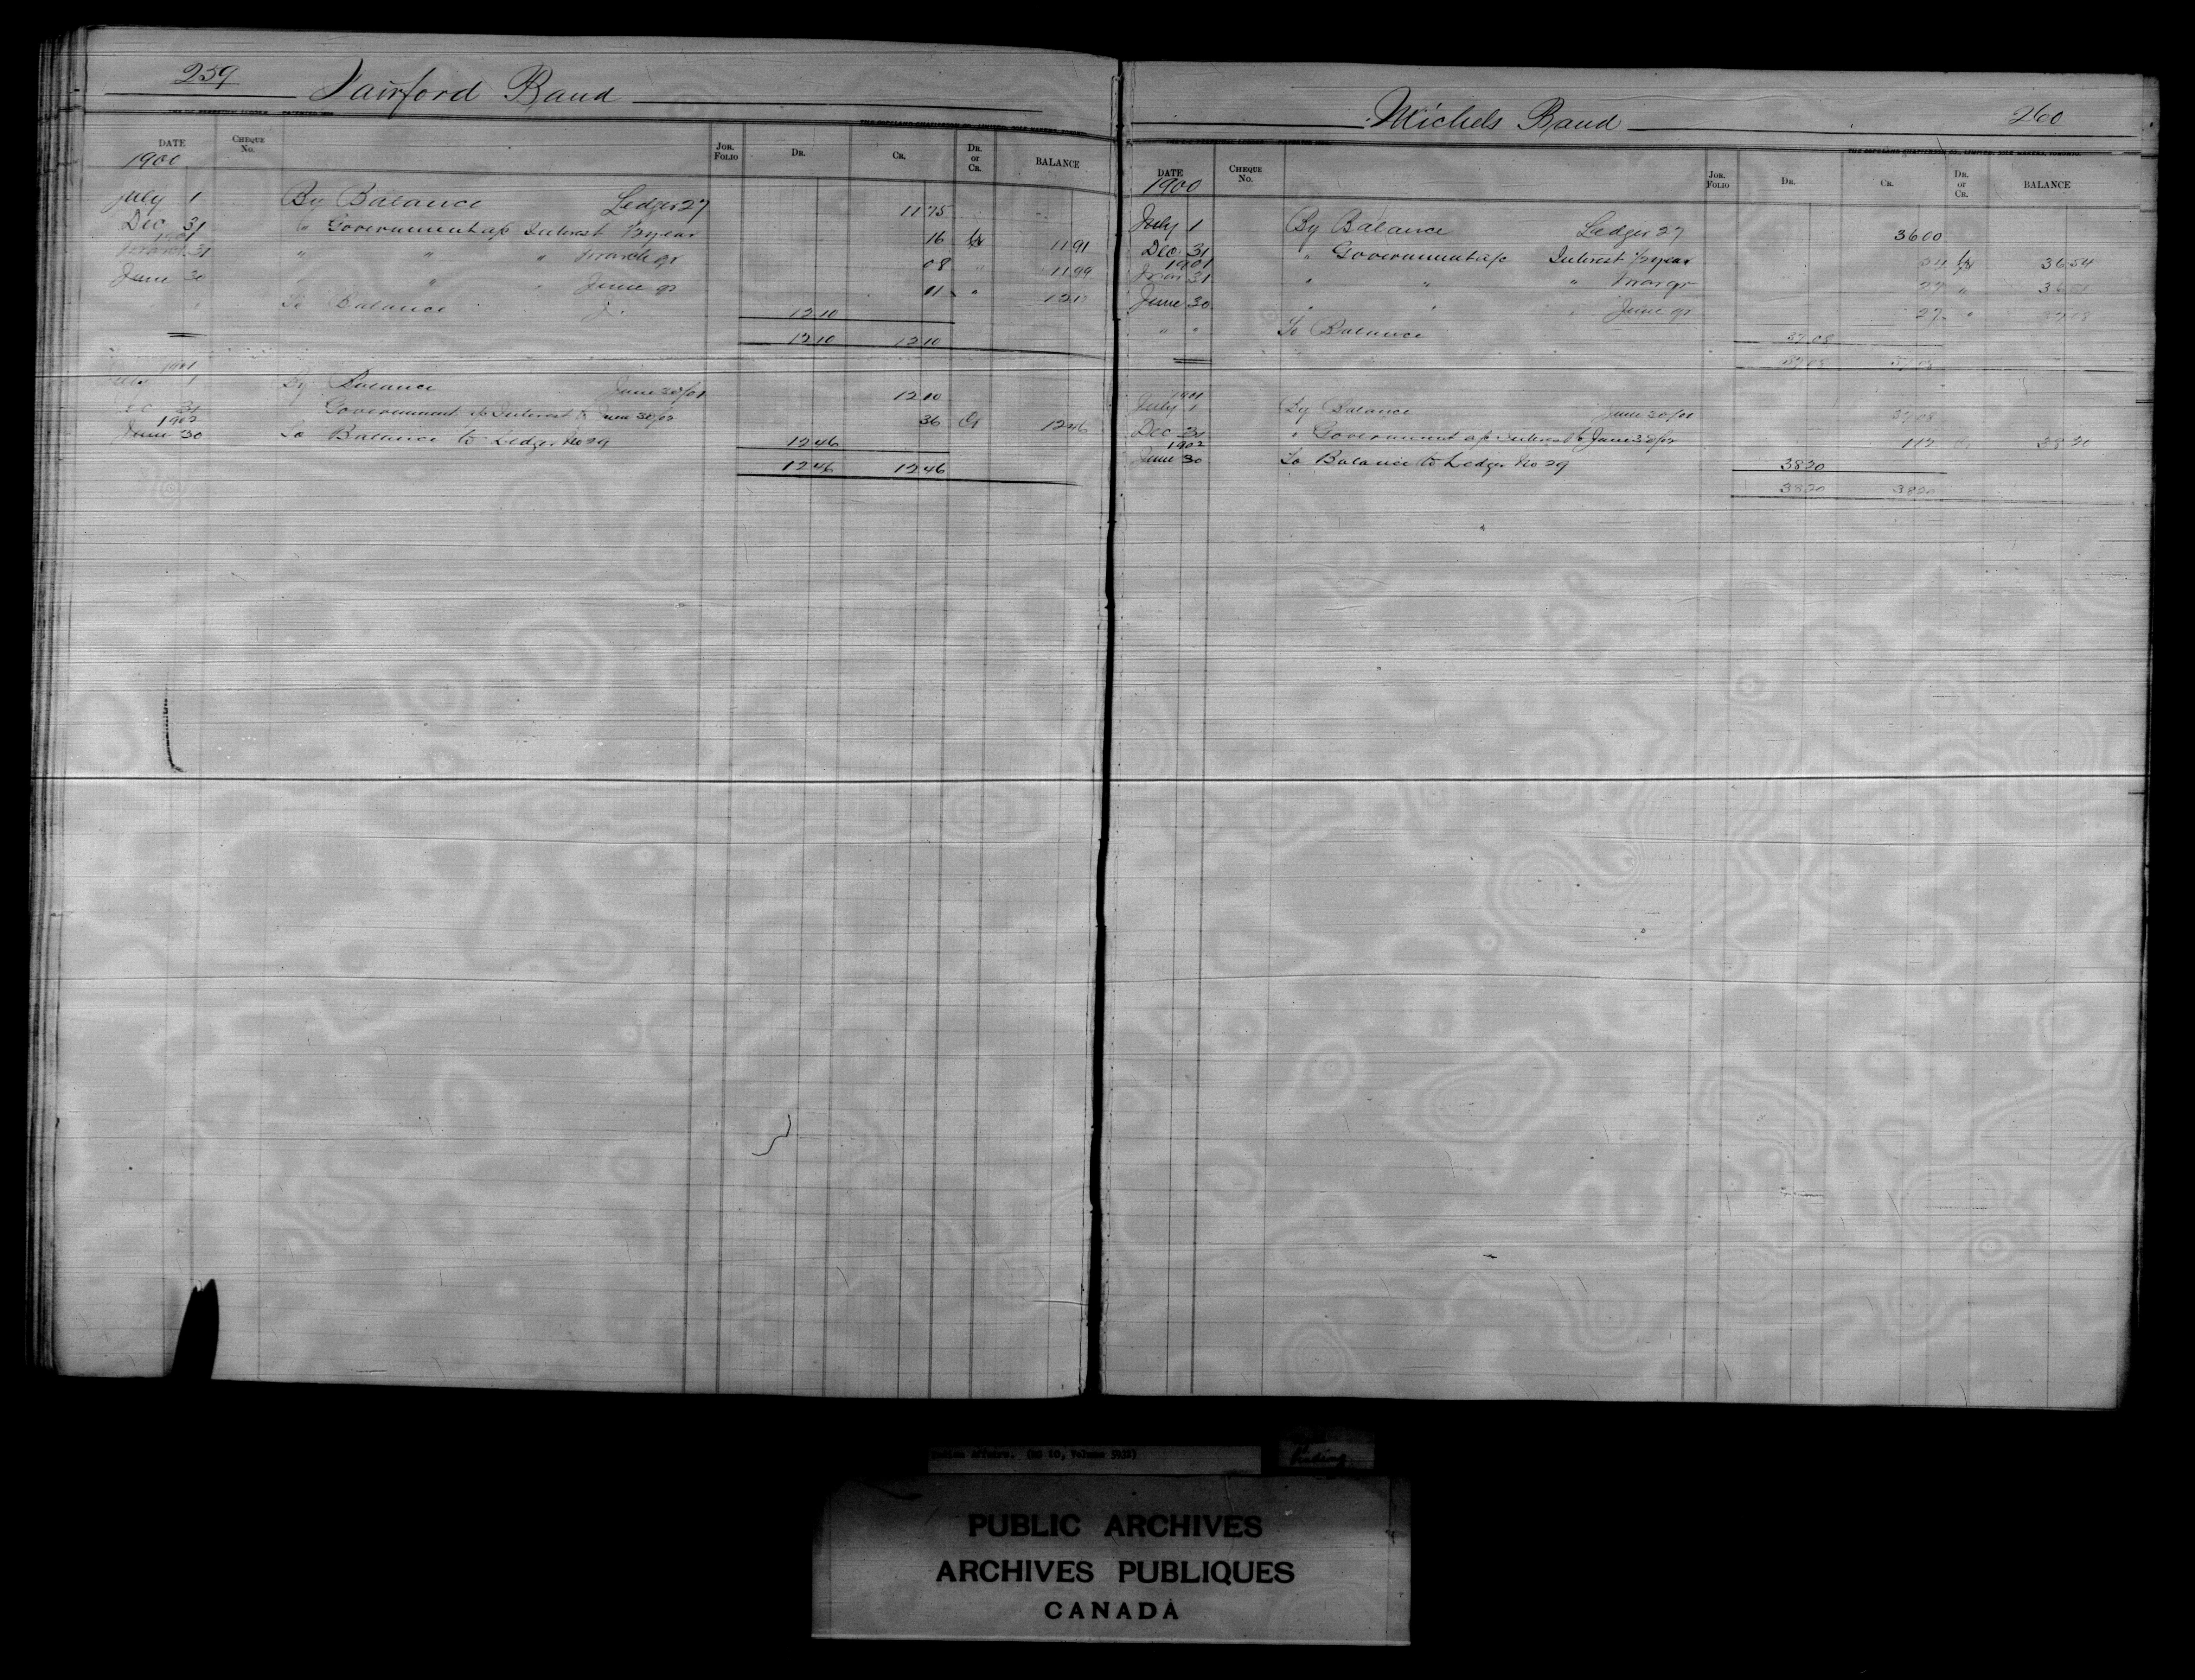 259 Fairford Band
DATE CHEQUE No. JOR. FOLIO DR. CR. DR. or CR. BALANCE
1900
July 1 By Balance Ledger 27 11 75
Dec 31 " Government a/c Interest 1/2 year 16 Cr 11 91
1901
March 31 " " " March qr 08 " 11 99
June 30 " " " June qr 11 "
" To Balance 12 10
12 10 12 10
1901
July 1 By Balance June 30/01 12 10
Dec 31 Government a/c Interest to June 30/02 36 Cr 12 46
1902
June 30 To Balance to Ledger No 29 12 46
12 46 12 46
Michels Band 260
DATE CHEQUE No. JOR. FOLIO DR. CR. DR. or CR. BALANCE
1900
July 1 By Balance Ledger 27 36 00
Dec. 31 " Government a/c Interest 1/2 year 54 Cr 36 54
1901
Mar 31 " " " Mar qr 27 " 36 81
June 30 " " " June qr 27 " 37 08
" " To Balance 37 08
37 08 37 08
1901
July 1 By Balance June 30/01 37 08
Dec 31 " Government a/c Interest to June 30/02 1 12 Cr 38 20
1902
June 30 To Balance to Ledger No 29 38 20
38 20 38 20
Indian Affairs. (RG 10, Volume 5932)
PUBLIC ARCHIVES
ARCHIVES PUBLIQUES
CANADA